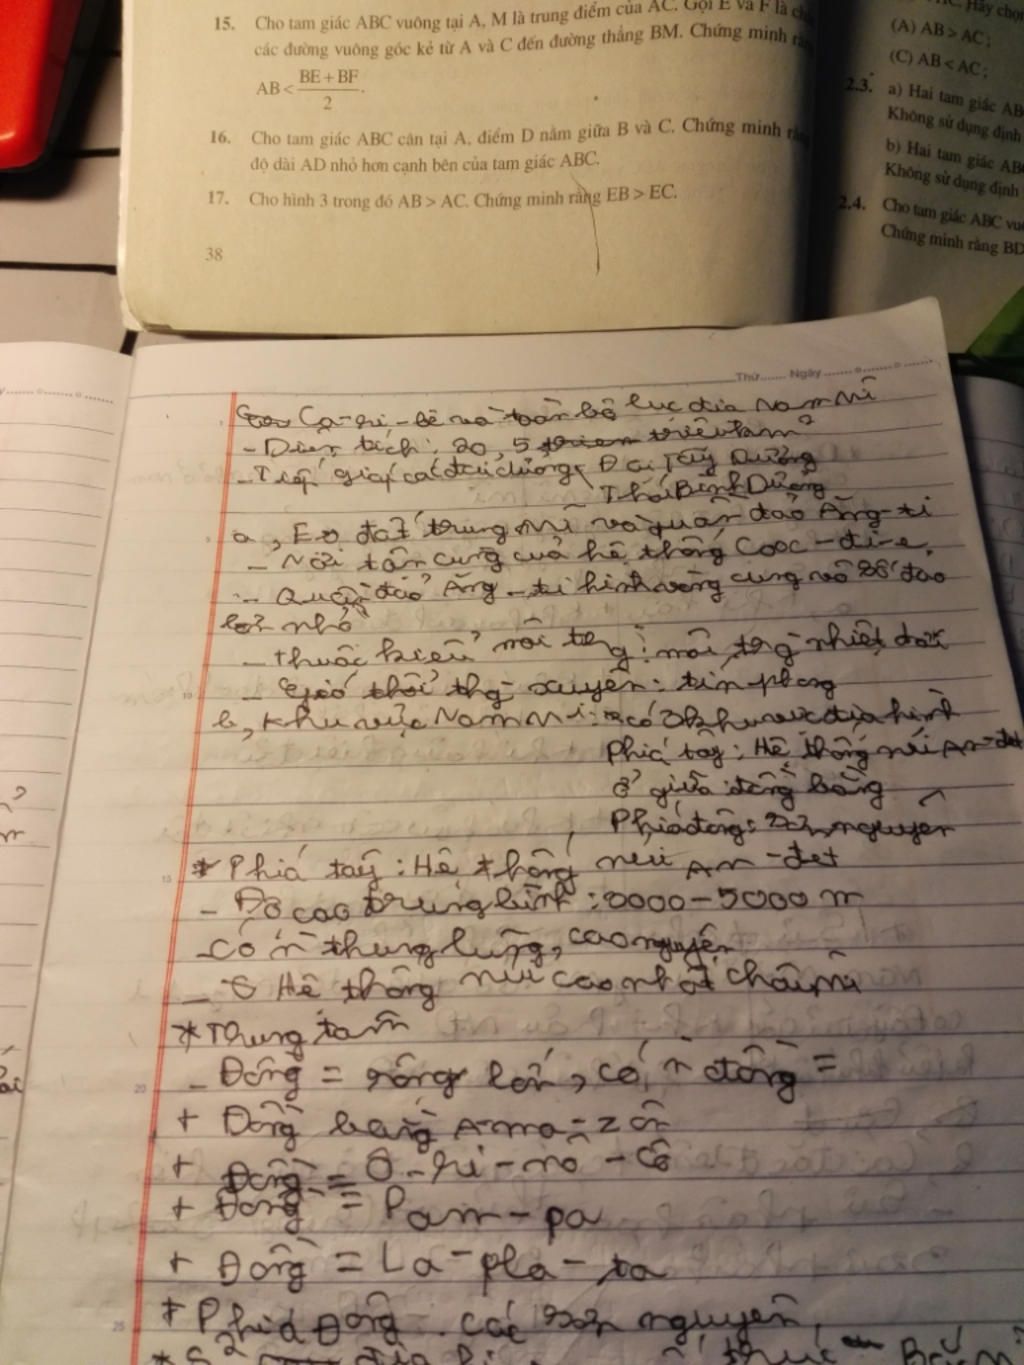 15. Cho tam giác ABC vuông tại A, M là trung điểm của AC. Gọi E và F là
các đường vuông góc kẻ từ A và C đến đường thẳng BM. Chứng minh
AB < (BE + BF)/2.
16. Cho tam giác ABC cân tại A, điểm D nằm giữa B và C. Chứng minh
độ dài AD nhỏ hơn cạnh bên của tam giác ABC.
17. Cho hình 3 trong đó AB > AC. Chứng minh rằng EB > EC.
38
Hãy
(A) AB > AC;
(C) AB < AC;
2.3. a) Hai tam giác
Không sử dụng định
b) Hai tam giác
Không sử dụng định
2.4. Cho tam giác ABC
Chứng minh rằng
Thứ....... Ngày
Ca-ri-bê và toàn bộ lục địa Nam Mĩ
- Diện tích: 20,5
- Tiếp giáp các đại dương Đại Tây Dương
Thái Bình Dương
a, Eo đất trung Mĩ và quần đảo Ăng-ti
- Nơi tận cùng của hệ thống Cooc-đi-e.
- Quần đảo Ăng-ti hình vòng cung vô số đảo
lớn nhỏ
- thuộc kiểu môi trg: môi trg nhiệt đới
- Gió thổi thg xuyên: tín phong
b, Khu vực Nam Mĩ: có 3 khu vực địa hình
Phía tây: Hệ thống núi An-đet
ở giữa đồng bằng
Phía đông: sơn nguyên
* Phía tây: Hệ thống núi An-đet
- Độ cao trung bình: 3000-5000 m
- có n thung lũng, cao nguyên
- Hệ thống núi cao nhất châu Mĩ
* Trung tâm
- Đồng = rộng lớn, có n đồng =
+ Đồng bằng A-ma-zôn
+ Đồng = Ô-ri-nô-cô
+ Đồng = Pam-pa
+ Đồng = La-pla-ta
* Phía Đông. các sơn nguyên